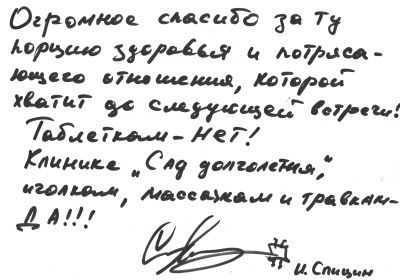 Огромное спасибо за ту
порцию здоровья и потряса-
ющего отношения, которой
хватит до следующей встречи!
Таблеткам - НЕТ!
Клинике "Сад долголетия",
иголкам, массажам и травкам-
ДА!!!
И. Спицин